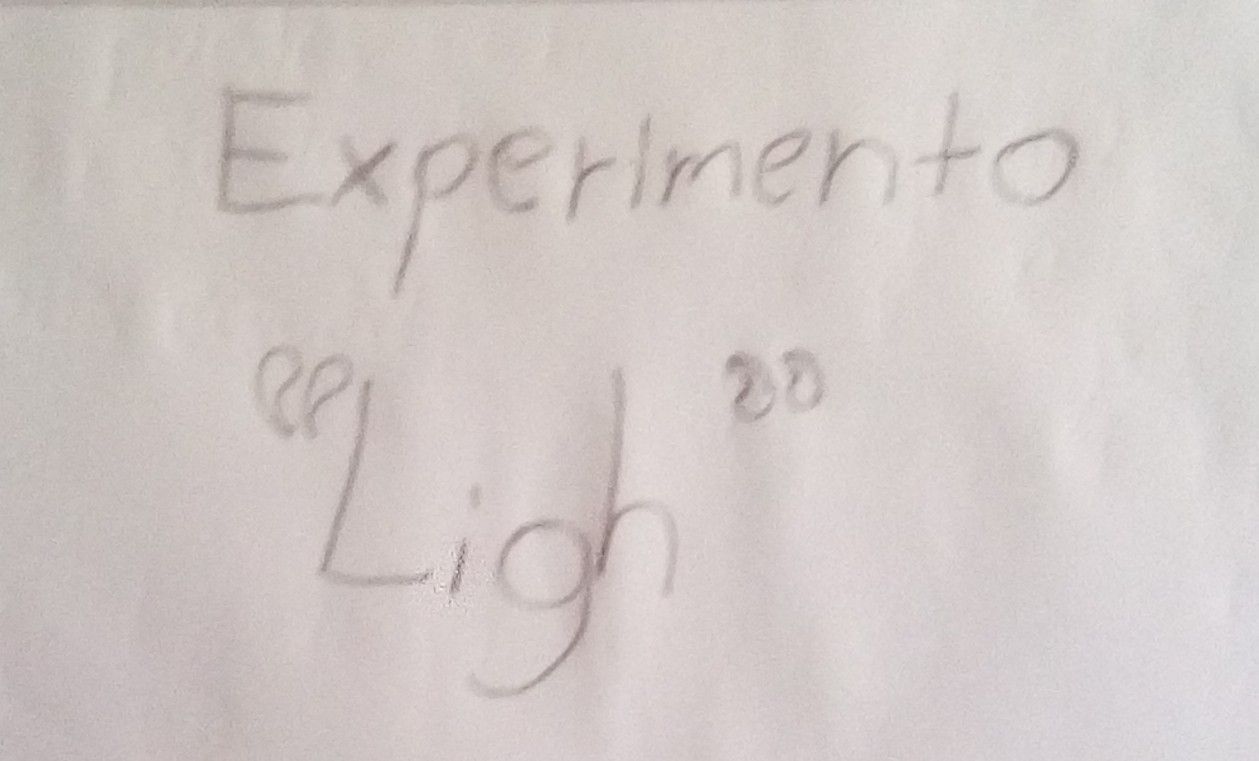 Experimento
“Ligh”